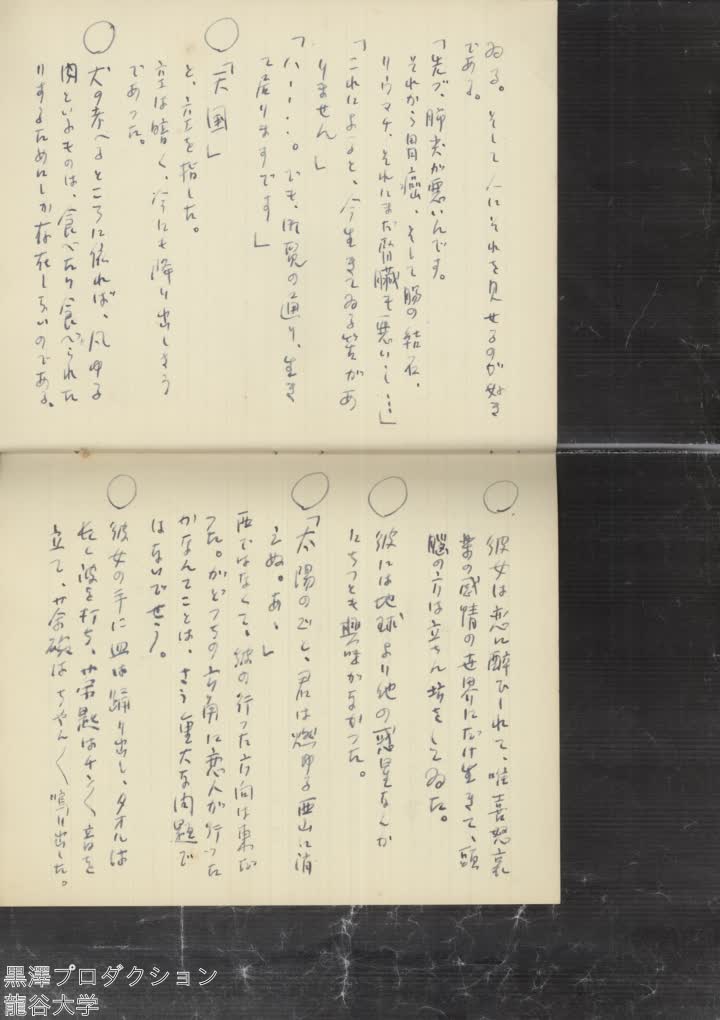 ゐる。そして人にそれを見せるのが好き
である。
「先づ、肺尖が悪いんです。
それから胃癌、そして腸の結石、
リウマチ、それにまだ腎臓も悪いし…」
「これによると、今生きてゐる筈があ
りません」
「ハ……。でも、御覧の通り、生き
て居りますです」
○「天国」
と、空を指した。
空は暗く、今にも降り出しさう
であつた。
○犬の考へるところに依れば、凡ゆる
肉といふものは、食べたり食べられた
りするためにしか存在しないのである。
○彼女は恋に酔ひしれて、唯喜怒哀
楽の感情の世界にだけ生きて、頭
脳の方は立ちん坊をしてゐた。
○彼には地球より他の惑星なんか
にちつとも興味がなかつた。
○「太陽の, 君は燃ゆる西山に消
えぬ。あゝ」
西ではなくて、彼の行つた方向は東だ
つた。がどつちの方角に悪人が行つた
かなんてことは、さう重大な問題で
はないでせう。
○彼女の手に皿は踊り出し、タオルは
長し波を打ち、お匙はチン〱音を
立て、茶碗はちやん〱鳴り出した。
黒澤プロダクション
龍谷大学